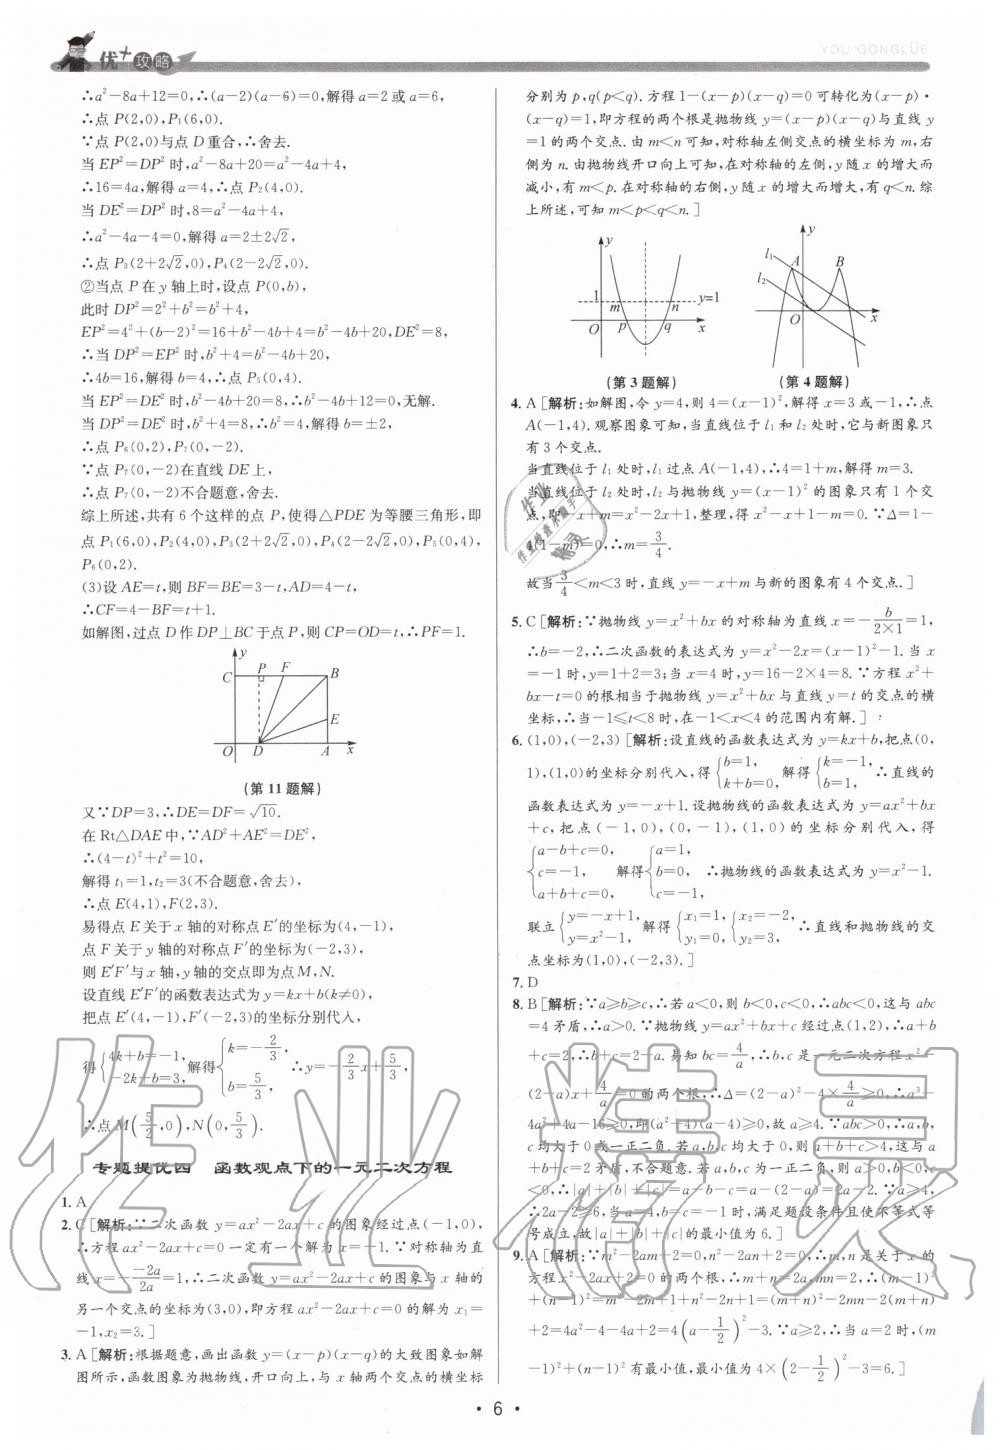 优+攻略
YOU+GONGLÜE
∴a²-8a+12=0,∴(a-2)(a-6)=0,解得a=2或a=6,
∴点P(2,0),P₁(6,0).
∵点P(2,0)与点D重合,∴舍去.
当EP²=DP²时,a²-8a+20=a²-4a+4,
∴16=4a,解得a=4,∴点P₂(4,0).
当DE²=DP²时,8=a²-4a+4,
∴a²-4a-4=0,解得a=2±2√2,
∴点P₃(2+2√2,0),P₄(2-2√2,0).
②当点P在y轴上时,设点P(0,b),
此时DP²=2²+b²=b²+4,
EP²=4²+(b-2)²=16+b²-4b+4=b²-4b+20,DE²=8,
∴当DP²=EP²时,b²+4=b²-4b+20,
∴4b=16,解得b=4,∴点P₅(0,4).
当EP²=DE²时,b²-4b+20=8,∴b²-4b+12=0,无解.
当DP²=DE²时,b²+4=8,∴b²=4,解得b=±2,
∴点P₆(0,2),P₇(0,-2).
∵点P₇(0,-2)在直线DE上,
∴点P₇(0,-2)不合题意,舍去.
综上所述,共有6个这样的点P,使得△PDE为等腰三角形,即
点P₁(6,0),P₂(4,0),P₃(2+2√2,0),P₄(2-2√2,0),P₅(0,4),
P₆(0,2).
(3)设AE=t,则BF=BE=3-t,AD=4-t,
∴CF=4-BF=t+1.
如解图,过点D作DP⊥BC于点P,则CP=OD=t,∴PF=1.
y
C P F B
E
O D A x
(第11题解)
又∵DP=3,∴DE=DF=√10.
在Rt△DAE中,∵AD²+AE²=DE²,
∴(4-t)²+t²=10,
解得t₁=1,t₂=3(不合题意,舍去),
∴点E(4,1),F(2,3).
易得点E关于x轴的对称点E′的坐标为(4,-1),
点F关于y轴的对称点F′的坐标为(-2,3),
则E′F′与x轴,y轴的交点即为点M,N.
设直线E′F′的函数表达式为y=kx+b(k≠0),
把点E′(4,-1),F′(-2,3)的坐标分别代入,
得{4k+b=-1, -2k+b=3, 解得{k=-2/3, b=5/3, ∴y=-2/3x+5/3,
∴点M(5/2,0),N(0,5/3).
专题提优四 函数观点下的一元二次方程
1. A
2. C[解析:∵二次函数y=ax²-2ax+c的图象经过点(-1,0),
∴方程ax²-2ax+c=0一定有一个解为x=-1.∵对称轴为直
线x=-(-2a)/2a=1,∴二次函数y=ax²-2ax+c的图象与x轴的
另一个交点的坐标为(3,0),即方程ax²-2ax+c=0的解为x₁=
-1,x₂=3.]
3. A[解析:根据题意,画出函数y=(x-p)(x-q)的大致图象如解
图所示,函数图象为抛物线,开口向上,与x轴两个交点的横坐标
分别为p,q(p<q).方程1-(x-p)(x-q)=0可转化为(x-p)·
(x-q)=1,即方程的两个根是抛物线y=(x-p)(x-q)与直线y
=1的两个交点.由m<n可知,对称轴左侧交点的横坐标为m,右
侧为n.由抛物线开口向上可知,在对称轴的左侧,y随x的增大而
减小,有m<p.在对称轴的右侧,y随x的增大而增大,有q<n.综
上所述,可知m<p<q<n.]
y
1 m n y=1
O p q x
(第3题解)
y
l₁ A B
l₂
O x
(第4题解)
4. A[解析:如解图,令y=4,则4=(x-1)²,解得x=3或-1,∴点
A(-1,4).观察图象可知,当直线位于l₁和l₂处时,它与新图象只
有3个交点.
当直线位于l₁处时,l₁过点A(-1,4),∴4=1+m,解得m=3.
当直线位于l₂处时,l₂与抛物线y=(x-1)²的图象只有1个交
点,即-x+m=x²-2x+1,整理,得x²-x+1-m=0.∵Δ=1-
4(1-m)=0,∴m=3/4.
故当3/4<m<3时,直线y=-x+m与新的图象有4个交点.]
5. C[解析:∵抛物线y=x²+bx的对称轴为直线x=-b/(2×1)=1,
∴b=-2,∴二次函数的表达式为y=x²-2x=(x-1)²-1.当x
=-1时,y=1+2=3;当x=4时,y=16-2×4=8.∵方程x²+
bx-t=0的根相当于抛物线y=x²+bx与直线y=t的交点的横
坐标,∴当-1≤t<8时,在-1<x<4的范围内有解.]
6. (1,0),(-2,3)[解析:设直线的函数表达式为y=kx+b,把点(0,
1),(1,0)的坐标分别代入,得{b=1, k+b=0, 解得{k=-1, b=1, ∴直线的
函数表达式为y=-x+1.设抛物线的函数表达式为y=ax²+bx
+c,把点(-1,0),(0,-1),(1,0)的坐标分别代入,得
{a-b+c=0, c=-1, a+b+c=0, 解得{a=1, b=0, c=-1, ∴抛物线的函数表达式为y=x²-1.
联立{y=-x+1, y=x²-1, 解得{x₁=1, y₁=0, {x₂=-2, y₂=3, ∴直线和抛物线的交
点坐标为(1,0),(-2,3).]
7. D
8. B[解析:∵a≥b≥c,∴若a<0,则b<0,c<0,∴abc<0,这与abc
=4矛盾,∴a>0.∵抛物线y=ax²+bx+c经过点(1,2),∴a+b
+c=2,∴b+c=2-a.易知bc=4/a,∴b,c是一元二次方程x²-
(2-a)x+4/a=0的两个根,∴Δ=(2-a)²-4×4/a≥0,∴a³-
4a²+4a-16≥0,即(a²+4)(a-4)≥0,故a≥4.∵abc>0,∴a,b,
c均大于0或一正二负.若a,b,c均大于0,则a+b+c>4,这与a
+b+c=2矛盾,不合题意.若a,b,c为一正二负,则a>0,b<0,c
<0,∴|a|+|b|+|c|=a-b-c=a-(2-a)=2a-2.∵a≥4,
∴2a-2≥6,当a=4,b=c=-1时,满足题设条件且使不等式等
号成立,故|a|+|b|+|c|的最小值为6.]
9. A[解析:∵m²-2am+2=0,n²-2an+2=0,∴m,n是关于x的
方程x²-2ax+2=0的两个根,∴m+n=2a,mn=2,∴(m-1)²
+(n-1)²=m²-2m+1+n²-2n+1=(m+n)²-2mn-2(m+n)
+2=4a²-4-4a+2=4(a-1/2)²-3.∵a≥2,∴当a=2时,(m
-1)²+(n-1)²有最小值,最小值为4×(2-1/2)²-3=6.]
· 6 ·
作业精灵